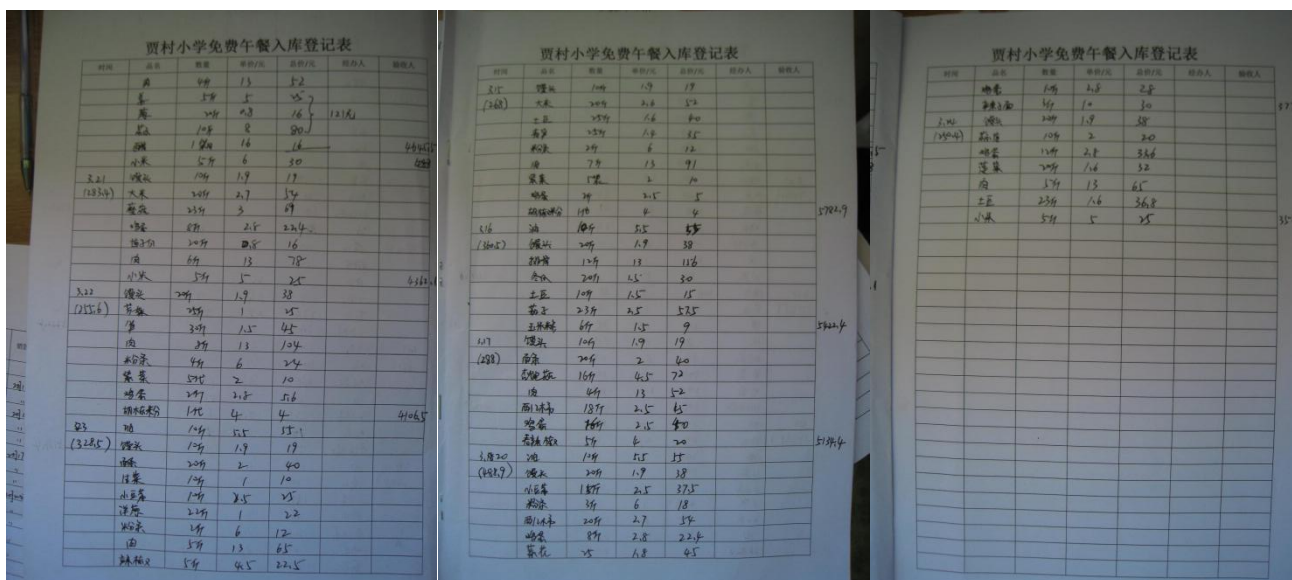 贾村小学免费午餐入库登记表
时间 品名 数量 单价/元 总价/元 经办人 验收人
肉 4斤 13 52
姜 5斤 5 25
20斤 0.8 16 121元
10斤 8 80
16 16
小米 5斤 6 30
3.21 馒头 10斤 1.9 19
(283.4) 大米 20斤 2.7 54
蘑菇 23斤 3 69
鸡蛋 8斤 2.8 22.4
20斤 0.8 16
肉 6斤 13 78
小米 5斤 5 25
3.22 馒头 20斤 1.9 38
(255.6) 25斤 1 25
笋 30斤 1.5 45
肉 8斤 13 104
粉条 4斤 6 24
紫菜 5代 2 10
鸡蛋 2斤 2.8 5.6
胡椒粉 1代 4 4 4106.5
油 10斤 5.5 55
(328.5) 馒头 10斤 1.9 19
面条 20斤 2 40
10斤 1 10
小豆芽 10斤 2.5 25
洋葱 22斤 1 22
粉条 2斤 6 12
肉 5斤 13 65
5斤 4.5 22.5
贾村小学免费午餐入库登记表
时间 品名 数量 单价/元 总价/元 经办人 验收人
3.15 馒头 10斤 1.9 19
(268) 大米 20斤 2.6 52
土豆 25斤 1.6 40
25斤 1.4 35
粉条 2斤 6 12
肉 7斤 13 91
紫菜 5袋 2 10
鸡蛋 2斤 2.5 5
4 4 5782.9
3.16 油 10斤 5.5 55
(360.5) 馒头 20斤 1.9 38
排骨 12斤 13 156
冬瓜 20斤 1.5 30
土豆 10斤 1.5 15
茄子 23斤 2.5 57.5
6斤 1.5 9 5422.4
3.17 馒头 10斤 1.9 19
(288) 面条 20斤 2 40
16斤 4.5 72
肉 4斤 13 52
西红柿 18斤 2.5 45
鸡蛋 16斤 2.5 40
5斤 4 20 5134.4
油 10斤 5.5 55
馒头 20斤 1.9 38
小豆芽 2.5 37.5
粉条 3斤 6 18
西红柿 20斤 2.7 54
鸡蛋 8斤 2.8 22.4
菜花 25 1.8 45
贾村小学免费午餐入库登记表
时间 品名 数量 单价/元 总价/元 经办人 验收人
鸡蛋 2.8 28
3斤 10 30
馒头 20斤 1.9 38
(250.4) 10斤 2 20
鸡蛋 12斤 2.8 33.6
菠菜 20斤 1.6 32
肉 5斤 13 65
土豆 23斤 1.6 36.8
小米 5斤 5 25